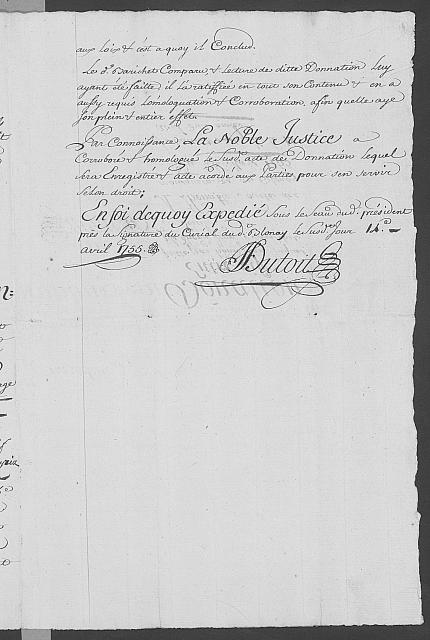 aux loix & c'est a quoy il Conclud.
Le s.r Barichet Comparu, & Lecture de ditte Donnation Luy
ayant été faitte, il la ratiffiée en tout son Contenu & en a
aussy requis Lomologuation & Corroboration, afin quelle aye
son plein & entier effet.
Par Connoissance, La Noble Justice a
Corroboré & homologué Le susd. acte de Donnation Lequel
sera Enregistré & acte acordé aux Parties pour s'en servir
selon droit;
En foi dequoy Expedié sous le seau dud. président
près la signature du Curial du d. Blonay le susd. jour 14.e
avril 1755.
Dutoit